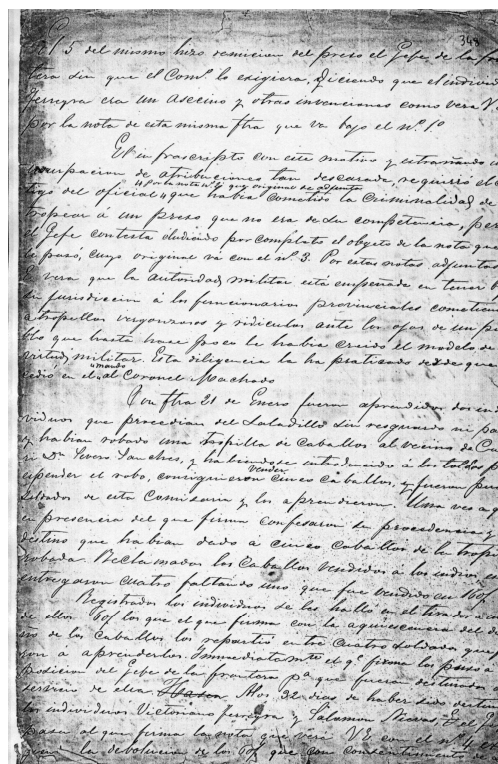 348
El 5 del mismo hizo remision del preso el Gefe de la fron
tera sin que el Comº lo exigiera, diciendo que el individ
Ferreyra era un asecino y otras invenciones como vera V
por la nota de esta misma fha que va bajo el nº 1º
El infrascripto con este motivo y estrañando
usurpacion de atribuciones tan descarada, requirió el
por la nota nº 2 cuyo original se adjunta
tigo del oficial que habia cometido la criminalidad de
tropear a un preso que no era de su competencia, per
el Gefe contesta eludiendo por completo el objeto de la nota que
le pasó, cuyo original vá con el nº 3. Por estas notas adjuntas
vera que la autoridad militar está empeñada en tener
su jurisdiccion á los funcionarios provinciales cometiendo
atropellos vergonzosos y ridiculos ante los ojos de un pue
blo que hasta hace poco le habia creido el modelo de
virtud militar. Esta diligencia la ha practizado desde que
mando
cedió en el al Coronel Machado
Con fha 21 de Enero fueron aprendidos dos indi
viduos que procedian del Saladillo sin resguardo ni pa
y habian robado una tropilla de caballos al vecino de
Dn Severo Sanches, y habiendose introducido á los toldos
vender
espender el robo, consiguieron cinco caballos, y fueron
soldados de esta Comisaria y los aprendieron. Una ves
en presencia del que firma confesaron su procedencia y
destino que habian dado á cinco caballos de la tropi
robada. Reclamados los caballos vendidos á los indios
entregaron cuatro faltando uno que fue vendido en
Registrados los individuos se les halló en el tirador
de ellos los que el que firma con la aquiescencia del
no de los caballos los repartió entre cuatro soldados que
ron á aprenderlos. Inmediatamte el qe firma los puso á
posicion del Gefe de la frontera pª que fueran destinados
servicio de ella. A los 22 dias de haber sido destin
los individuos Victoriano Ferreyra y Salomon Nievas, el
pasa al que firma la nota que verá V.E. con el nº 4
la debolucion de los que con consentimiento de